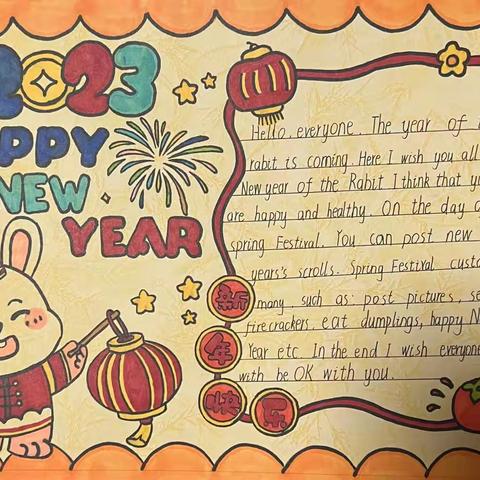 2023
APPY
NEW
YEAR
Hello, everyone. The year of
rabit is coming. Here I wish you all
New year of the Rabit I think that
are happy and healthy. On the day
spring Festival. You can post new
years's scrolls. Spring Festival
many such as: post pictures,
firecrackers, eat dumplings, happy
Year etc In the end I wish everyone
with be OK with you.
新
年
快
乐